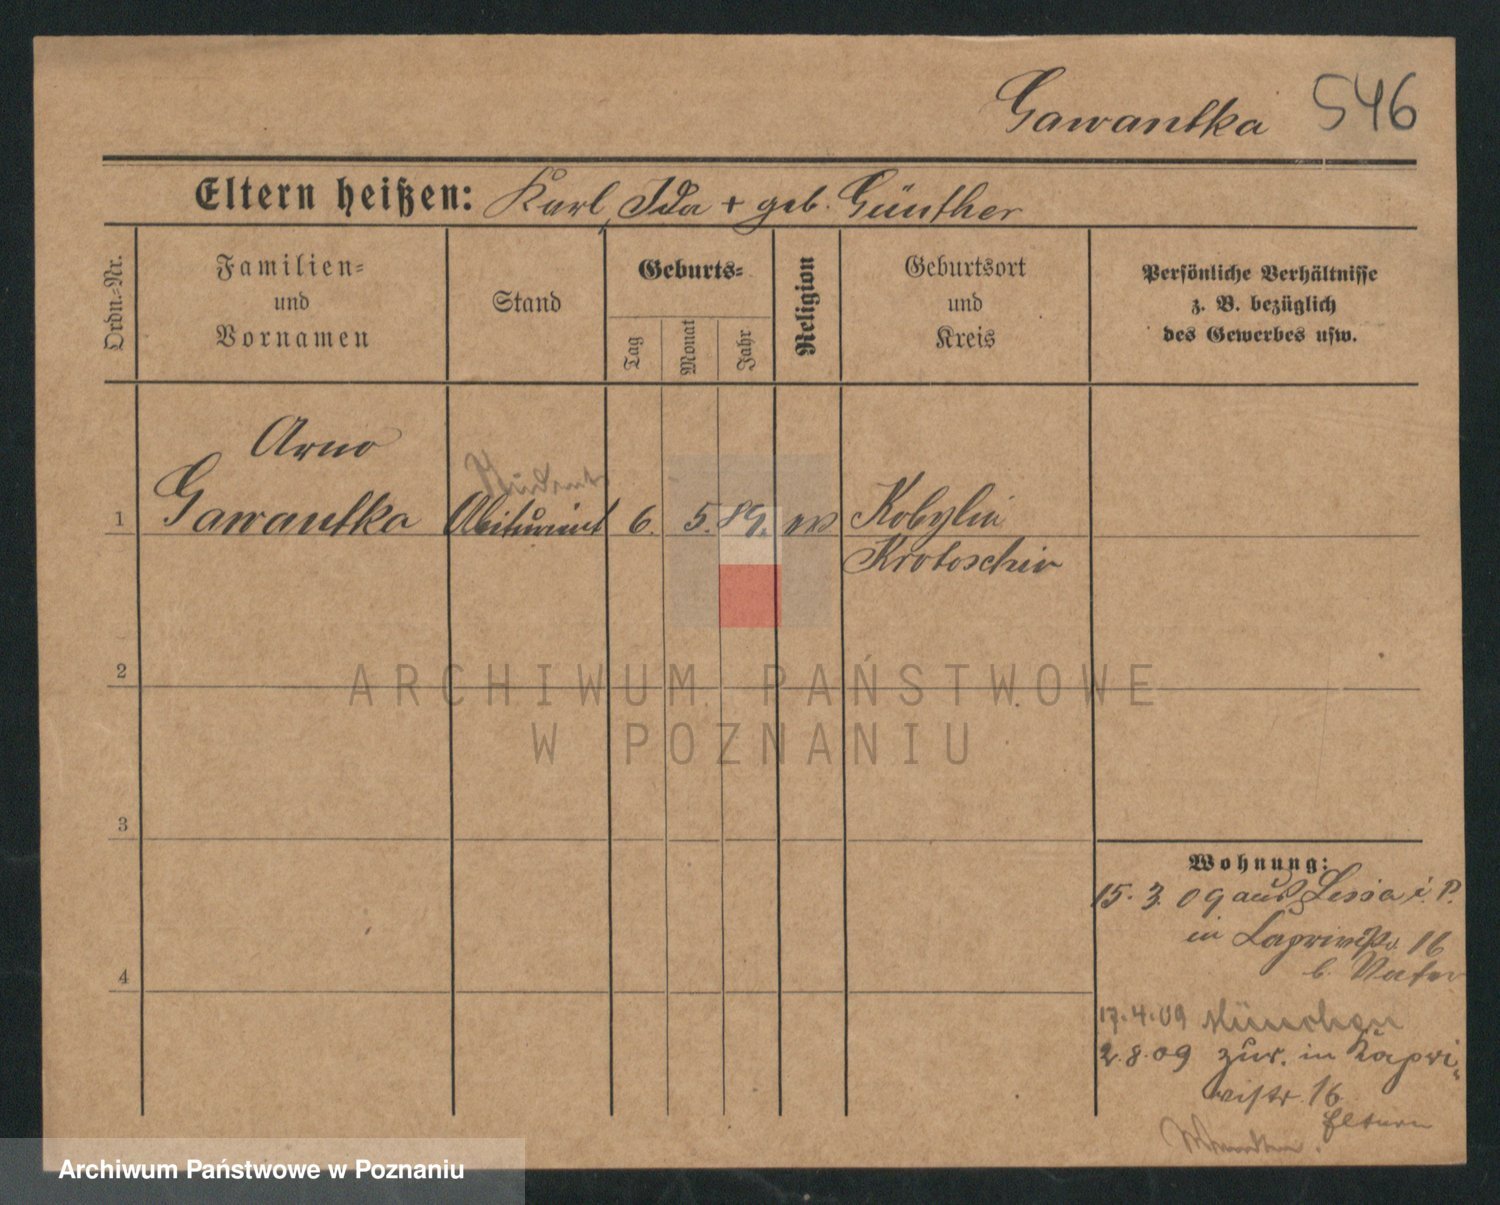 Gawantka 546
Eltern heißen: Karl, Ida + geb. Günther
Ordn.-Nr.
Familien-
und
Vornamen
Stand
Geburts-
Tag
Monat
Jahr
Religion
Geburtsort
und
Kreis
Persönliche Verhältnisse
z. B. bezüglich
des Gewerbes usw.
Arno
Student
1 Gawantka Abiturient 6. 5. 89. ev Kobylin
Krotoschin
2
ARCHIWUM PAŃSTWOWE
W POZNANIU
3
Wohnung:
15. 3. 09 aus Lissa i. P.
in 16
4
b. Vater
17. 4. 09 München
2. 8. 09 zur. in Kapri-
vistr. 16
Eltern
Archiwum Państwowe w Poznaniu